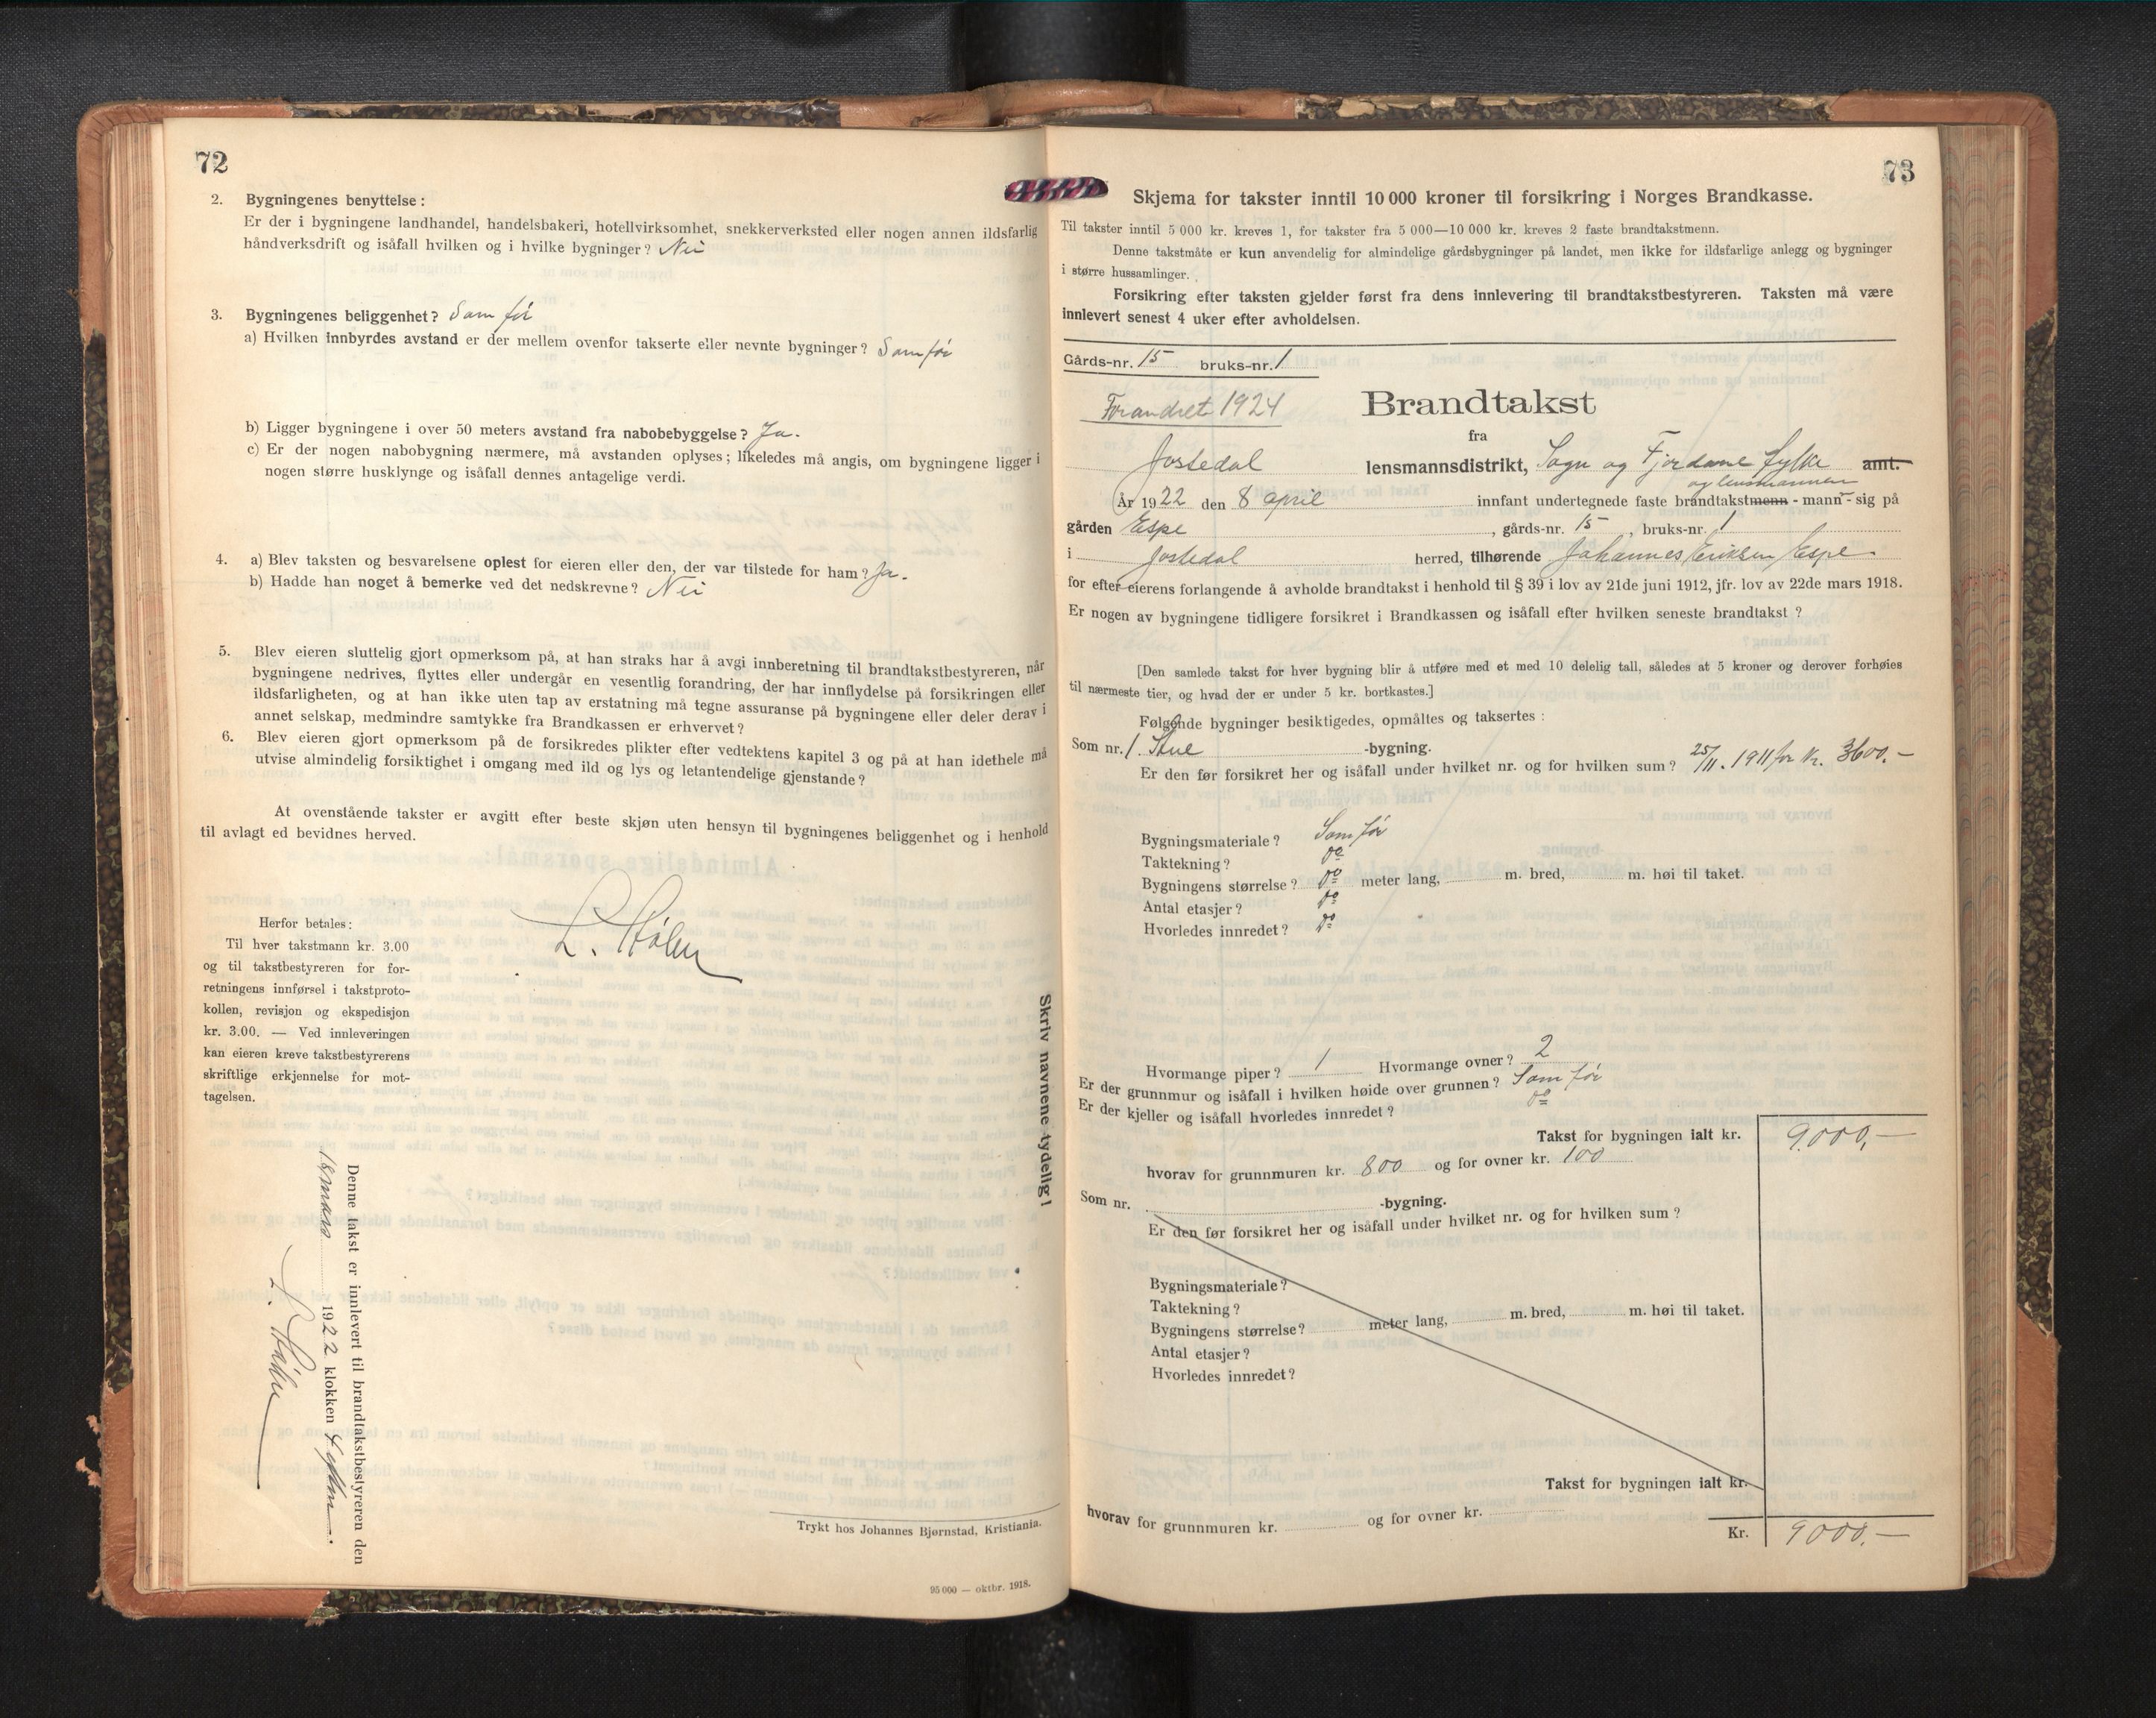 72
2. Bygningenes benyttelse:
Er der i bygningene landhandel, handelsbakeri, hotellvirksomhet, snekkerverksted eller nogen annen ildsfarlig
håndverksdrift og isåfall hvilken og i hvilke bygninger? Nei
3. Bygningenes beliggenhet? Som før
a) Hvilken innbyrdes avstand er der mellem ovenfor takserte eller nevnte bygninger? Som før
b) Ligger bygningene i over 50 meters avstand fra nabobebyggelse? Ja.
c) Er der nogen nabobygning nærmere, må avstanden oplyses; likeledes må angis, om bygningene ligger i
nogen større husklynge og isåfall dennes antagelige verdi.
4. a) Blev taksten og besvarelsene oplest for eieren eller den, der var tilstede for ham? Ja.
b) Hadde han noget å bemerke ved det nedskrevne? Nei
5. Blev eieren sluttelig gjort opmerksom på, at han straks har å avgi innberetning til brandtakstbestyreren, når
bygningene nedrives, flyttes eller undergår en vesentlig forandring, der har innflydelse på forsikringen eller
ildsfarligheten, og at han ikke uten tap av erstatning må tegne assuranse på bygningene eller deler derav i
annet selskap, medmindre samtykke fra Brandkassen er erhvervet?
6. Blev eieren gjort opmerksom på de forsikredes plikter efter vedtektens kapitel 3 og på at han idethele må
utvise almindelig forsiktighet i omgang med ild og lys og letantendelige gjenstande?
At ovenstående takster er avgitt efter beste skjøn uten hensyn til bygningenes beliggenhet og i henhold
til avlagt ed bevidnes herved.
L. Stølen
Herfor betales:
Til hver takstmann kr. 3.00
og til takstbestyreren for for-
retningens innførsel i takstproto-
kollen, revisjon og ekspedisjon
kr. 3.00. — Ved innleveringen
kan eieren kreve takstbestyrerens
skriftlige erkjennelse for mot-
tagelsen.
Skriv navnene tydelig!
Denne takst er innlevert til brandtakstbestyreren den
18 mars 1922 klokken 4 eftm.
L. Stølen
Trykt hos Johannes Bjørnstad, Kristiania.
95 000 — oktbr. 1918.
73
Skjema for takster inntil 10 000 kroner til forsikring i Norges Brandkasse.
Til takster inntil 5 000 kr. kreves 1, for takster fra 5 000—10 000 kr. kreves 2 faste brandtakstmenn.
Denne takstmåte er kun anvendelig for almindelige gårdsbygninger på landet, men ikke for ildsfarlige anlegg og bygninger
i større hussamlinger.
Forsikring efter taksten gjelder først fra dens innlevering til brandtakstbestyreren. Taksten må være
innlevert senest 4 uker efter avholdelsen.
Gårds-nr. 15 bruks-nr. 1
Forandret 1924
Brandtakst
fra
Jostedal lensmannsdistrikt, Sogn og Fjordane fylke amt.
og lensmannen
År 1922 den 8 april innfant undertegnede faste brandtakstmenn - mann - sig på
gården Espe, gårds-nr. 15, bruks-nr. 1
i Jostedal herred, tilhørende Johannes Eriksen Espe
for efter eierens forlangende å avholde brandtakst i henhold til § 39 i lov av 21de juni 1912, jfr. lov av 22de mars 1918.
Er nogen av bygningene tidligere forsikret i Brandkassen og isåfall efter hvilken seneste brandtakst?
[Den samlede takst for hver bygning blir å utføre med et med 10 delelig tall, således at 5 kroner og derover forhøies
til nærmeste tier, og hvad der er under 5 kr. bortkastes.]
Følgende bygninger besiktigedes, opmåltes og taksertes:
Som nr. 1. Stue -bygning.
Er den før forsikret her og isåfall under hvilket nr. og for hvilken sum? 25/11. 1911 for kr. 3600.-
Bygningsmateriale? Som før
Taktekning? do
Bygningens størrelse? do meter lang, m. bred, m. høi til taket.
Antal etasjer? do
Hvorledes innredet? do
Hvormange piper? 1 Hvormange ovner? 2
Er der grunnmur og isåfall i hvilken høide over grunnen? Som før
Er der kjeller og isåfall hvorledes innredet? do
Takst for bygningen ialt kr. 9.000,-
hvorav for grunnmuren kr. 800 og for ovner kr. 100
Som nr. -bygning.
Er den før forsikret her og isåfall under hvilket nr. og for hvilken sum?
Bygningsmateriale?
Taktekning?
Bygningens størrelse? meter lang, m. bred, m. høi til taket.
Antal etasjer?
Hvorledes innredet?
Takst for bygningen ialt kr.
hvorav for grunnmuren kr. og for ovner kr.
Kr. 9000.-